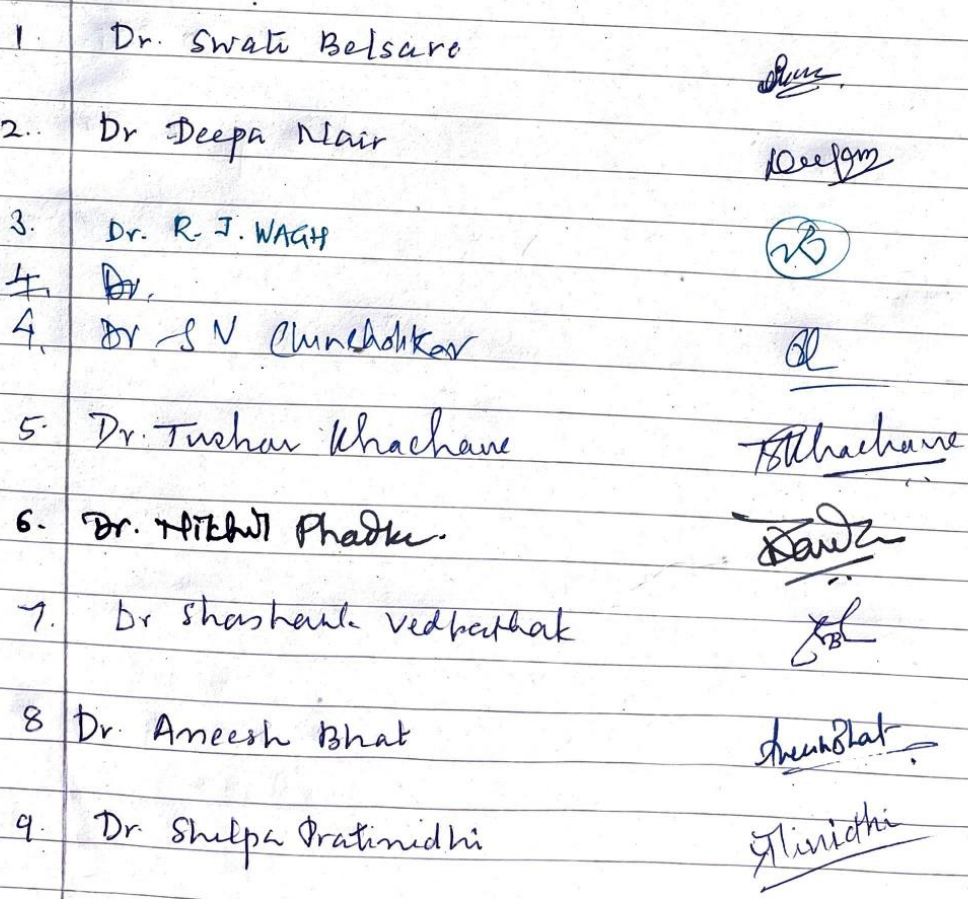 1. Dr. Swati Belsare
2. Dr Deepa Nair Deepa
3. Dr. R. J. WAGH
4. Dr.
4. Dr S N Chincholikar
5. Dr. Tushar Khachane TSKhachane
6. Dr. Nikhil Phadke.
7. Dr Shashank Vedpathak
8 Dr. Aneesh Bhat AneeshBhat
9. Dr. Shilpa Pratinidhi